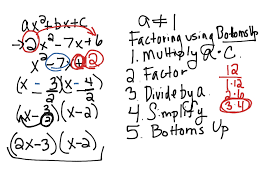 ax²+bx+c
→ 2x²-7x+6
x²-7x+12
(x - 3/2)(x - 4/2)
(x - 3/2)(x-2)
(2x-3)(x-2)
a ≠ 1
Factoring using Bottoms Up
1. Multiply a·C.
2 Factor
3. Divide by a.
4. Simplify
5. Bottoms Up
12
1·12
2·6
3·4